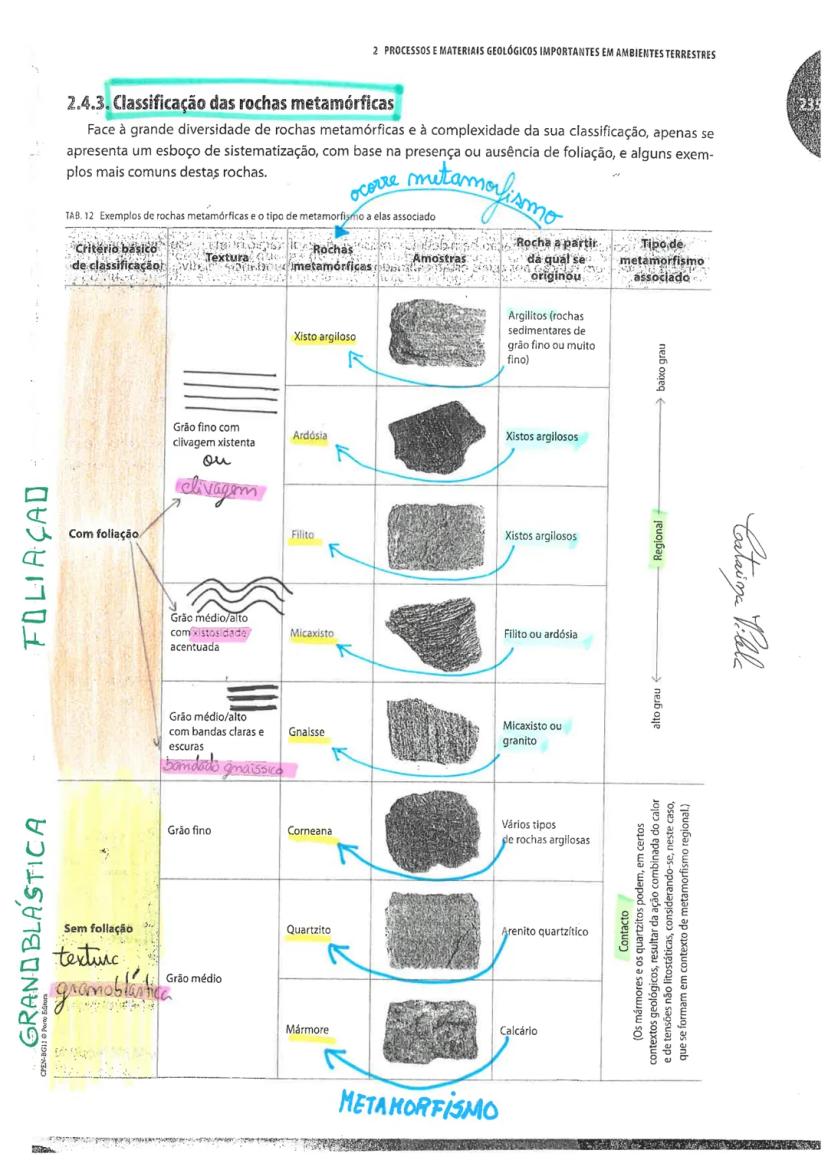 2 PROCESSOS E MATERIAIS GEOLÓGICOS IMPORTANTES EM AMBIENTES TERRESTRES
235
2.4.3. Classificação das rochas metamórficas
Face à grande diversidade de rochas metamórficas e à complexidade da sua classificação, apenas se
apresenta um esboço de sistematização, com base na presença ou ausência de foliação, e alguns exem-
plos mais comuns destas rochas.
ocorre metamorfismo
TAB. 12 Exemplos de rochas metamórficas e o tipo de metamorfismo a elas associado
Critério básico
de classificação
Textura
Rochas
metamórficas
Amostras
Rocha a partir
da qual se
originou
Tipo de
metamorfismo
associado
FOLIAÇAO
Com foliação
Grão fino com
clivagem xistenta
ou
clivagem
Xisto argiloso
Argilitos (rochas
sedimentares de
grão fino ou muito
fino)
Ardósia
Xistos argilosos
Filito
Xistos argilosos
Grão médio/alto
com xistosidade
acentuada
Micaxisto
Filito ou ardósia
Grão médio/alto
com bandas claras e
escuras
bandado gnaissico
Gnaisse
Micaxisto ou
granito
baixo grau
Regional
alto grau
Catarina
GRANOBLÁSTICA
Sem foliação
textura
granoblástica
Grão fino
Corneana
Vários tipos
de rochas argilosas
Grão médio
Quartzito
Arenito quartzítico
Mármore
Calcário
Contacto
(Os mármores e os quartzitos podem, em certos
contextos geológicos, resultar da ação combinada do calor
e de tensões não litostáticas, considerando-se, neste caso,
que se formam em contexto de metamorfismo regional.)
METAMORFISMO
CPEN-BG11 © Porto Editora